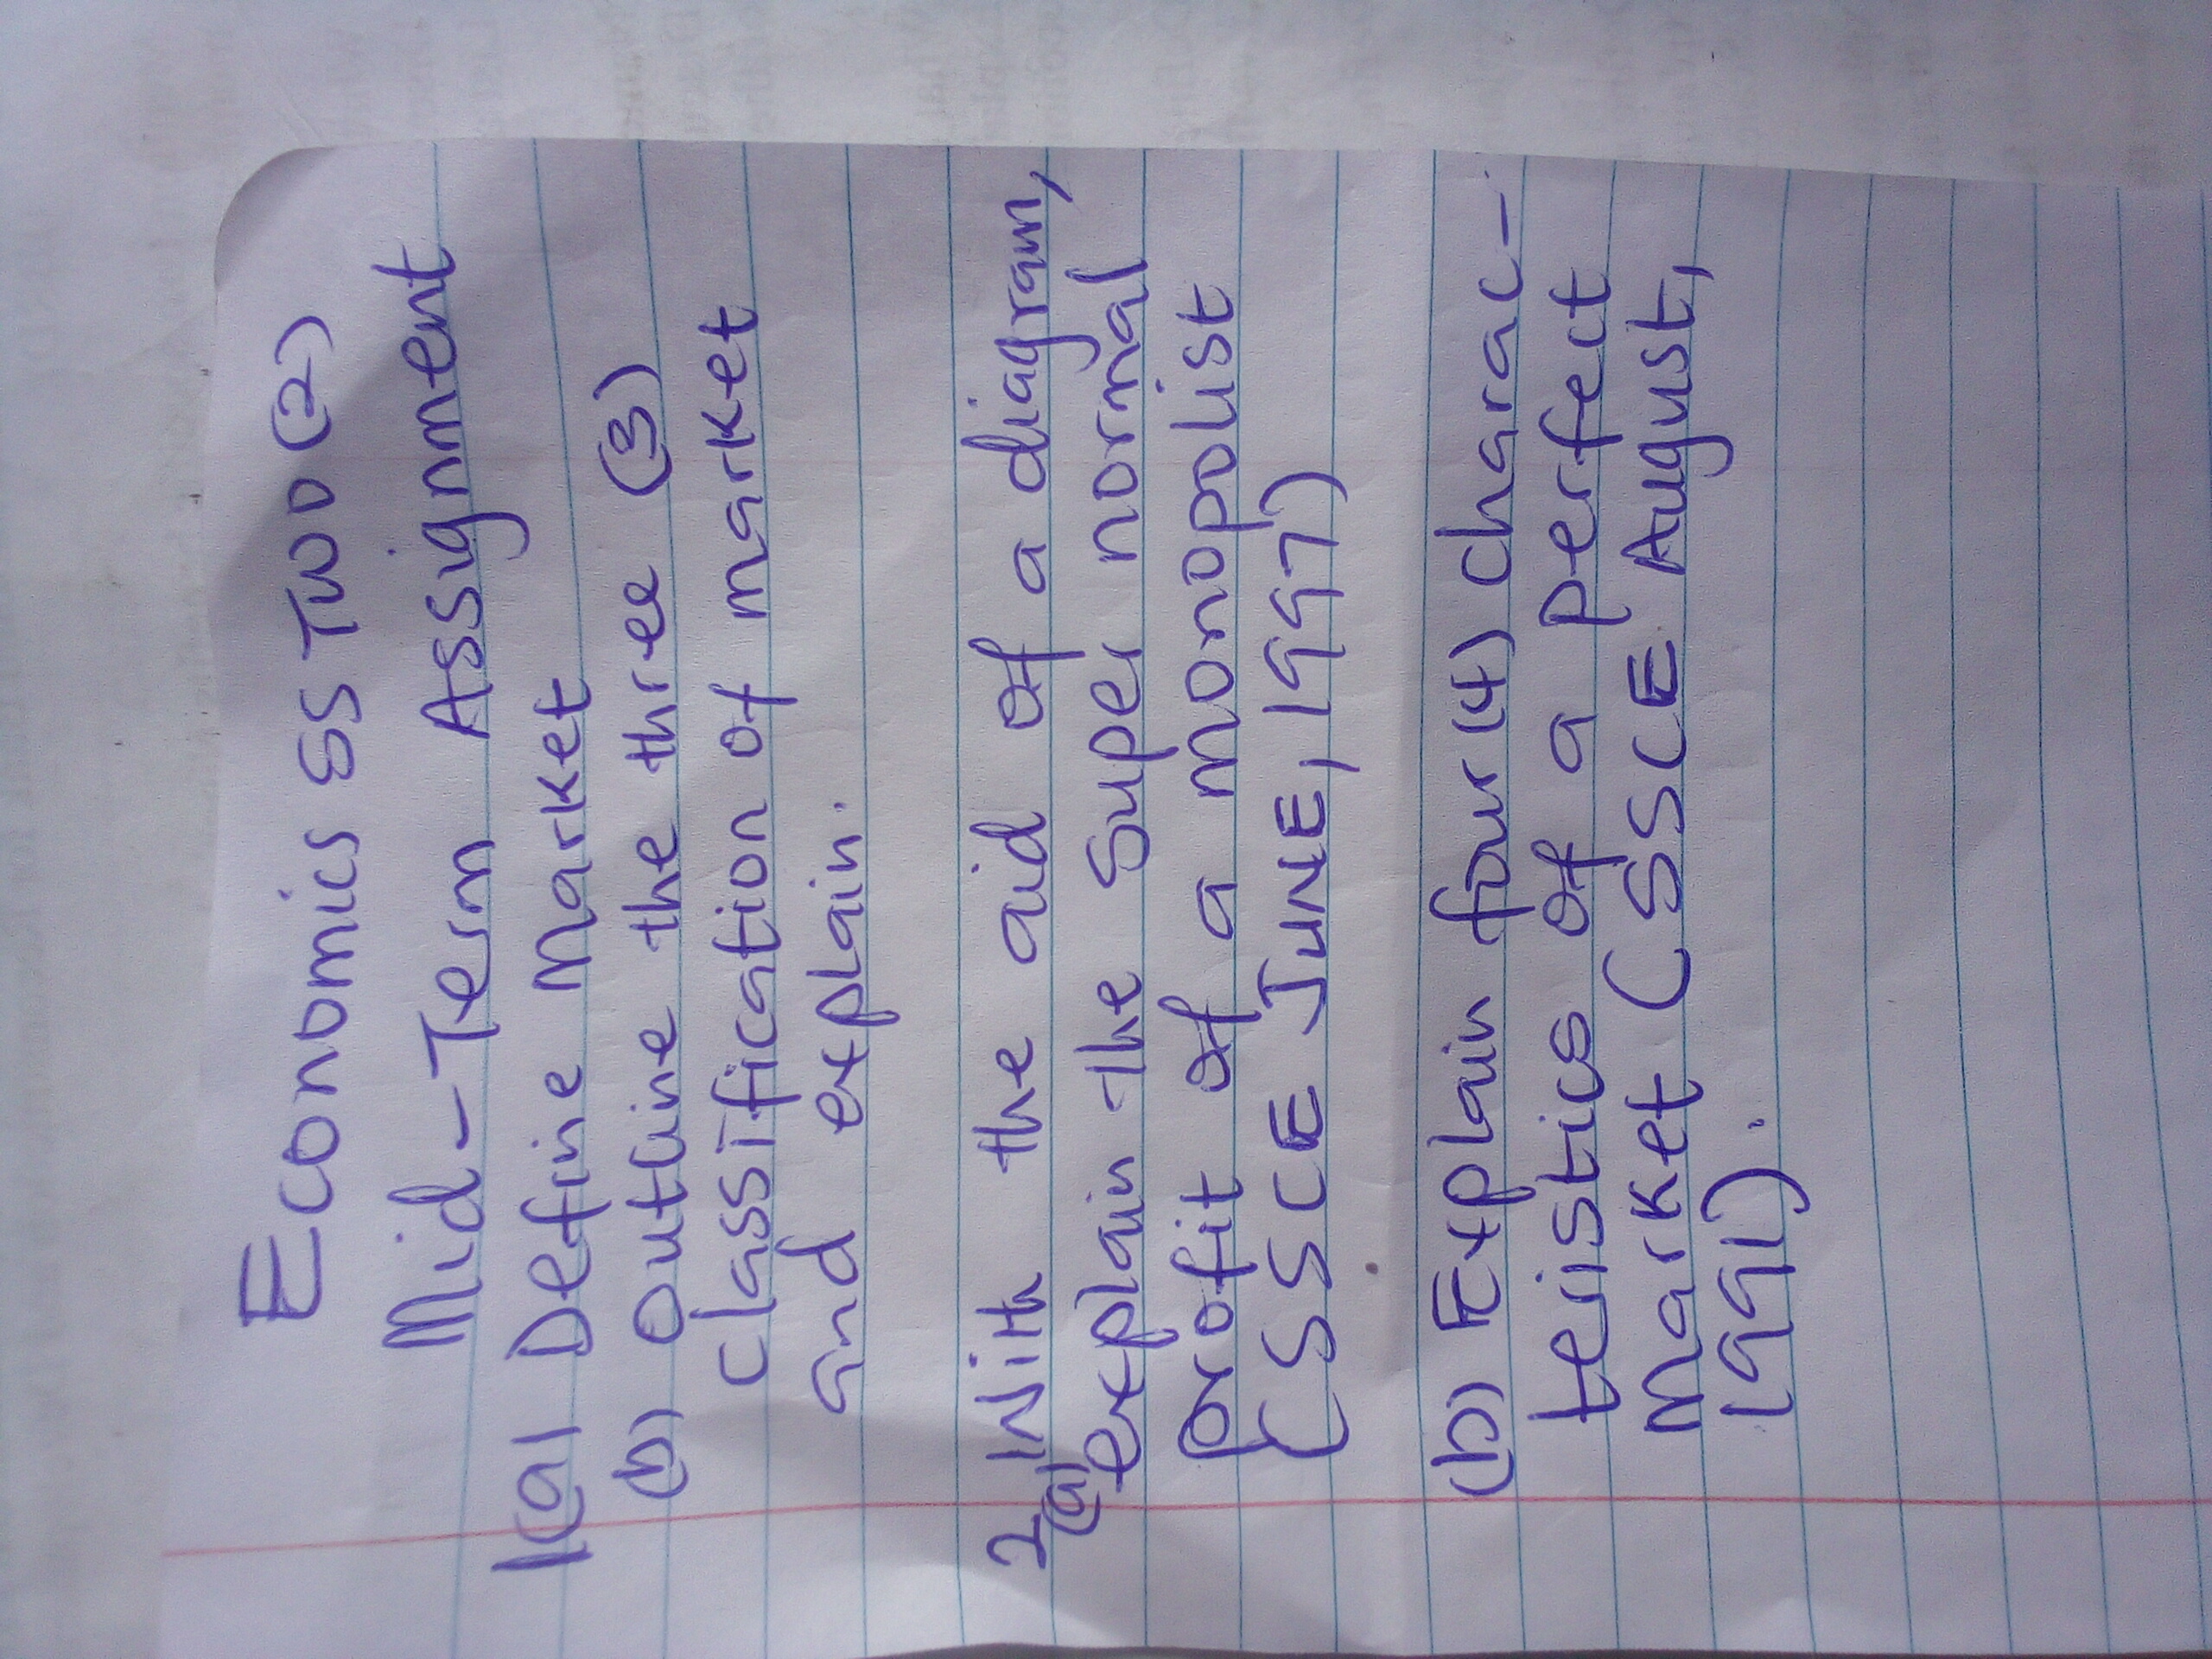 Economics SS TWO (2)
Mid-Term Assignment
1(a) Define Market
(b) Outline the three (3)
classification of market
and explain.
2(a) With the aid of a diagram,
explain the super normal
profit of a monopolist
(SSCE JUNE, 1997)
(b) Explain four (4) charac-
teristics of a perfect
Market (SSCE August,
1991).